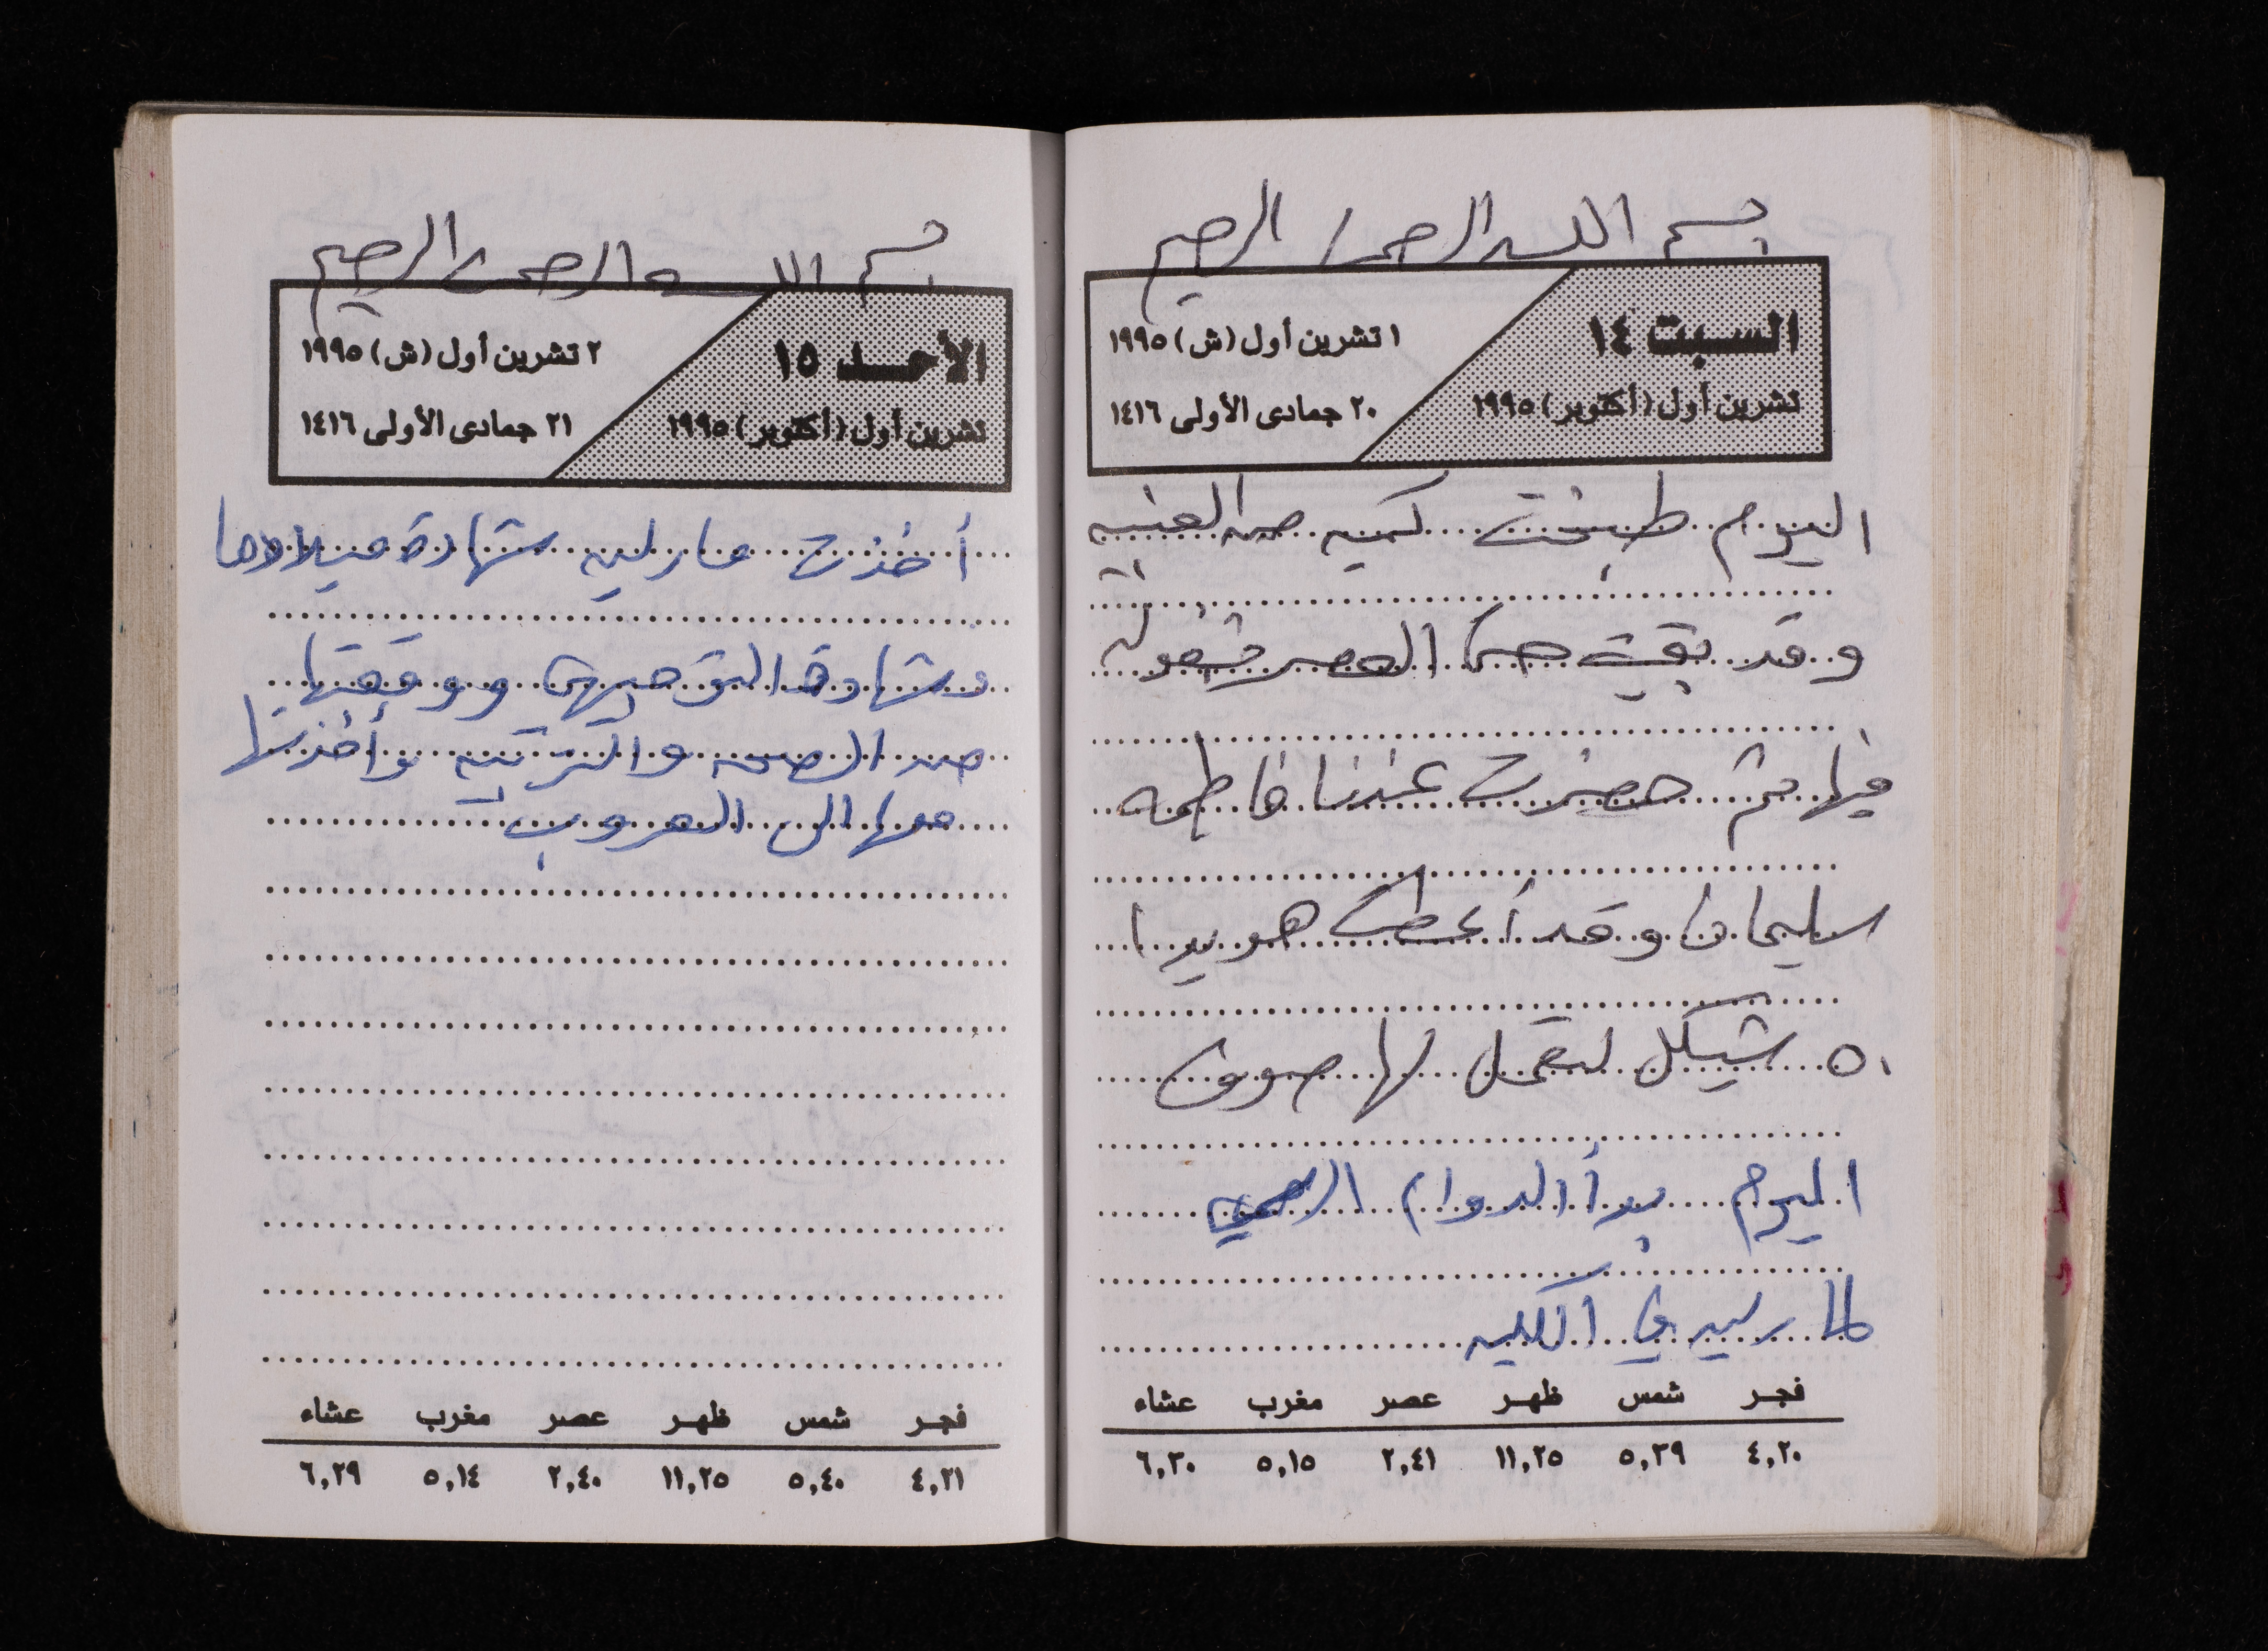 بسم الله الرحمن الرحيم
السبت ١٤
تشرين أول (أكتوبر) ١٩٩٥
١ تشرين أول (ش) ١٩٩٥
٢٠ جمادى الأولى ١٤١٦
اليوم طبخت كميه من العنبيه
وقد بقيت حتى العصر مشغوله
فيها ثم حضرت عندنا فاطمه
سليمان وقد أعطت هويدا
٥٠ شيكل لتعمل لها صوبون
اليوم بدأ الدوام الرسمي
لمارلين في الكليه
فجر شمس ظهر عصر مغرب عشاء
٤,٢٠ ٥,٣٩ ١١,٢٥ ٢,٤١ ٥,١٥ ٦,٣٠
بسم الله الرحمن الرحيم
الأحد ١٥
تشرين أول (أكتوبر) ١٩٩٥
٢ تشرين أول (ش) ١٩٩٥
٢١ جمادى الأولى ١٤١٦
أخذت مارلين شهادة ميلادها
وشهادة التوجيهي ووقعتها
من الصحه والتربيه وأخذتها
معها الى العروب
فجر شمس ظهر عصر مغرب عشاء
٤,٢١ ٥,٤٠ ١١,٢٥ ٢,٤٠ ٥,١٤ ٦,٢٩